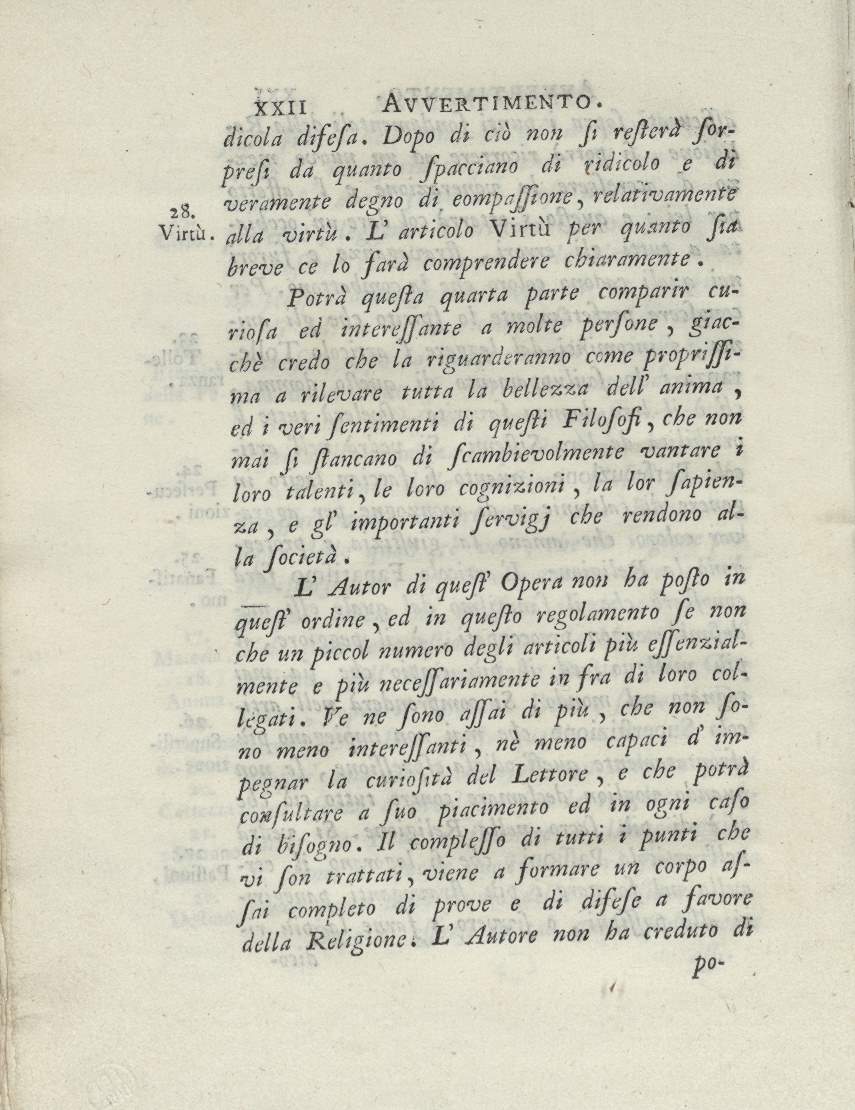 XXII AVVERTIMENTO.
dicola difeſa. Dopo di ciò non ſi reſterà ſor-
preſi da quanto ſpacciano di ridicolo e di
veramente degno di eompaſſione, relativamente
28.
Virtù.
alla virtù. L' articolo Virtù per quanto ſia
breve ce lo farà comprendere chiaramente.
Potrà queſta quarta parte comparir cu-
rioſa ed intereſſante a molte perſone, giac-
chè credo che la riguarderanno come propriſſi-
ma a rilevare tutta la bellezza dell' anima,
ed i veri ſentimenti di queſti Filoſofi, che non
mai ſi ſtancano di ſcambievolmente vantare i
loro talenti, le loro cognizioni, la lor ſapien-
za, e gl' importanti ſervigj che rendono al-
la ſocietà.
L' Autor di queſt' Opera non ha poſto in
queſt' ordine, ed in queſto regolamento ſe non
che un piccol numero degli articoli più eſſenzial-
mente e più neceſſariamente in fra di loro col-
legati. Ve ne ſono aſſai di più, che non ſo-
no meno intereſſanti, nè meno capaci d' im-
pegnar la curioſità del Lettore, e che potrà
conſultare a ſuo piacimento ed in ogni caſo
di biſogno. Il compleſſo di tutti i punti che
vi ſon trattati, viene a formare un corpo aſ-
ſai completo di prove e di difeſe a favore
della Religione. L' Autore non ha creduto di
po-